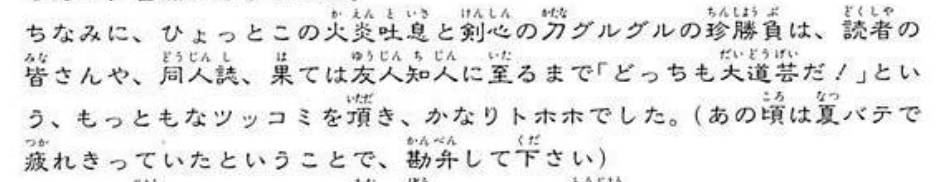 ちなみに、ひょっとこの火炎吐息と剣心の刀グルグルの珍勝負は、読者の
皆さんや、同人誌、果ては友人知人に至るまで「どっちも大道芸だ！」とい
う、もっともなツッコミを頂き、かなりトホホでした。(あの頃は夏バテで
疲れきっていたということで、勘弁して下さい)